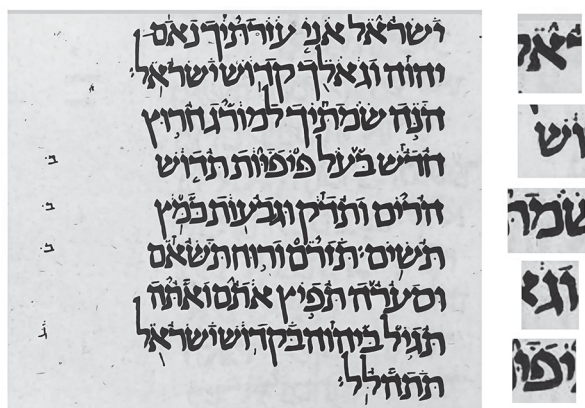 ישראל אני עזרתיך נאם
יהוה וגאלך קדוש ישראל׃
הנה שמתיך למורג חרוץ
חדש בעל פיפיות תדוש ב֗
הרים ותדק וגבעות כמץ ב֗
תשים׃ תזרם ורוח תשאם ב֗
וסערה תפיץ אתם ואתה
תגיל ביהוה בקדוש ישראל
תתהלל׃